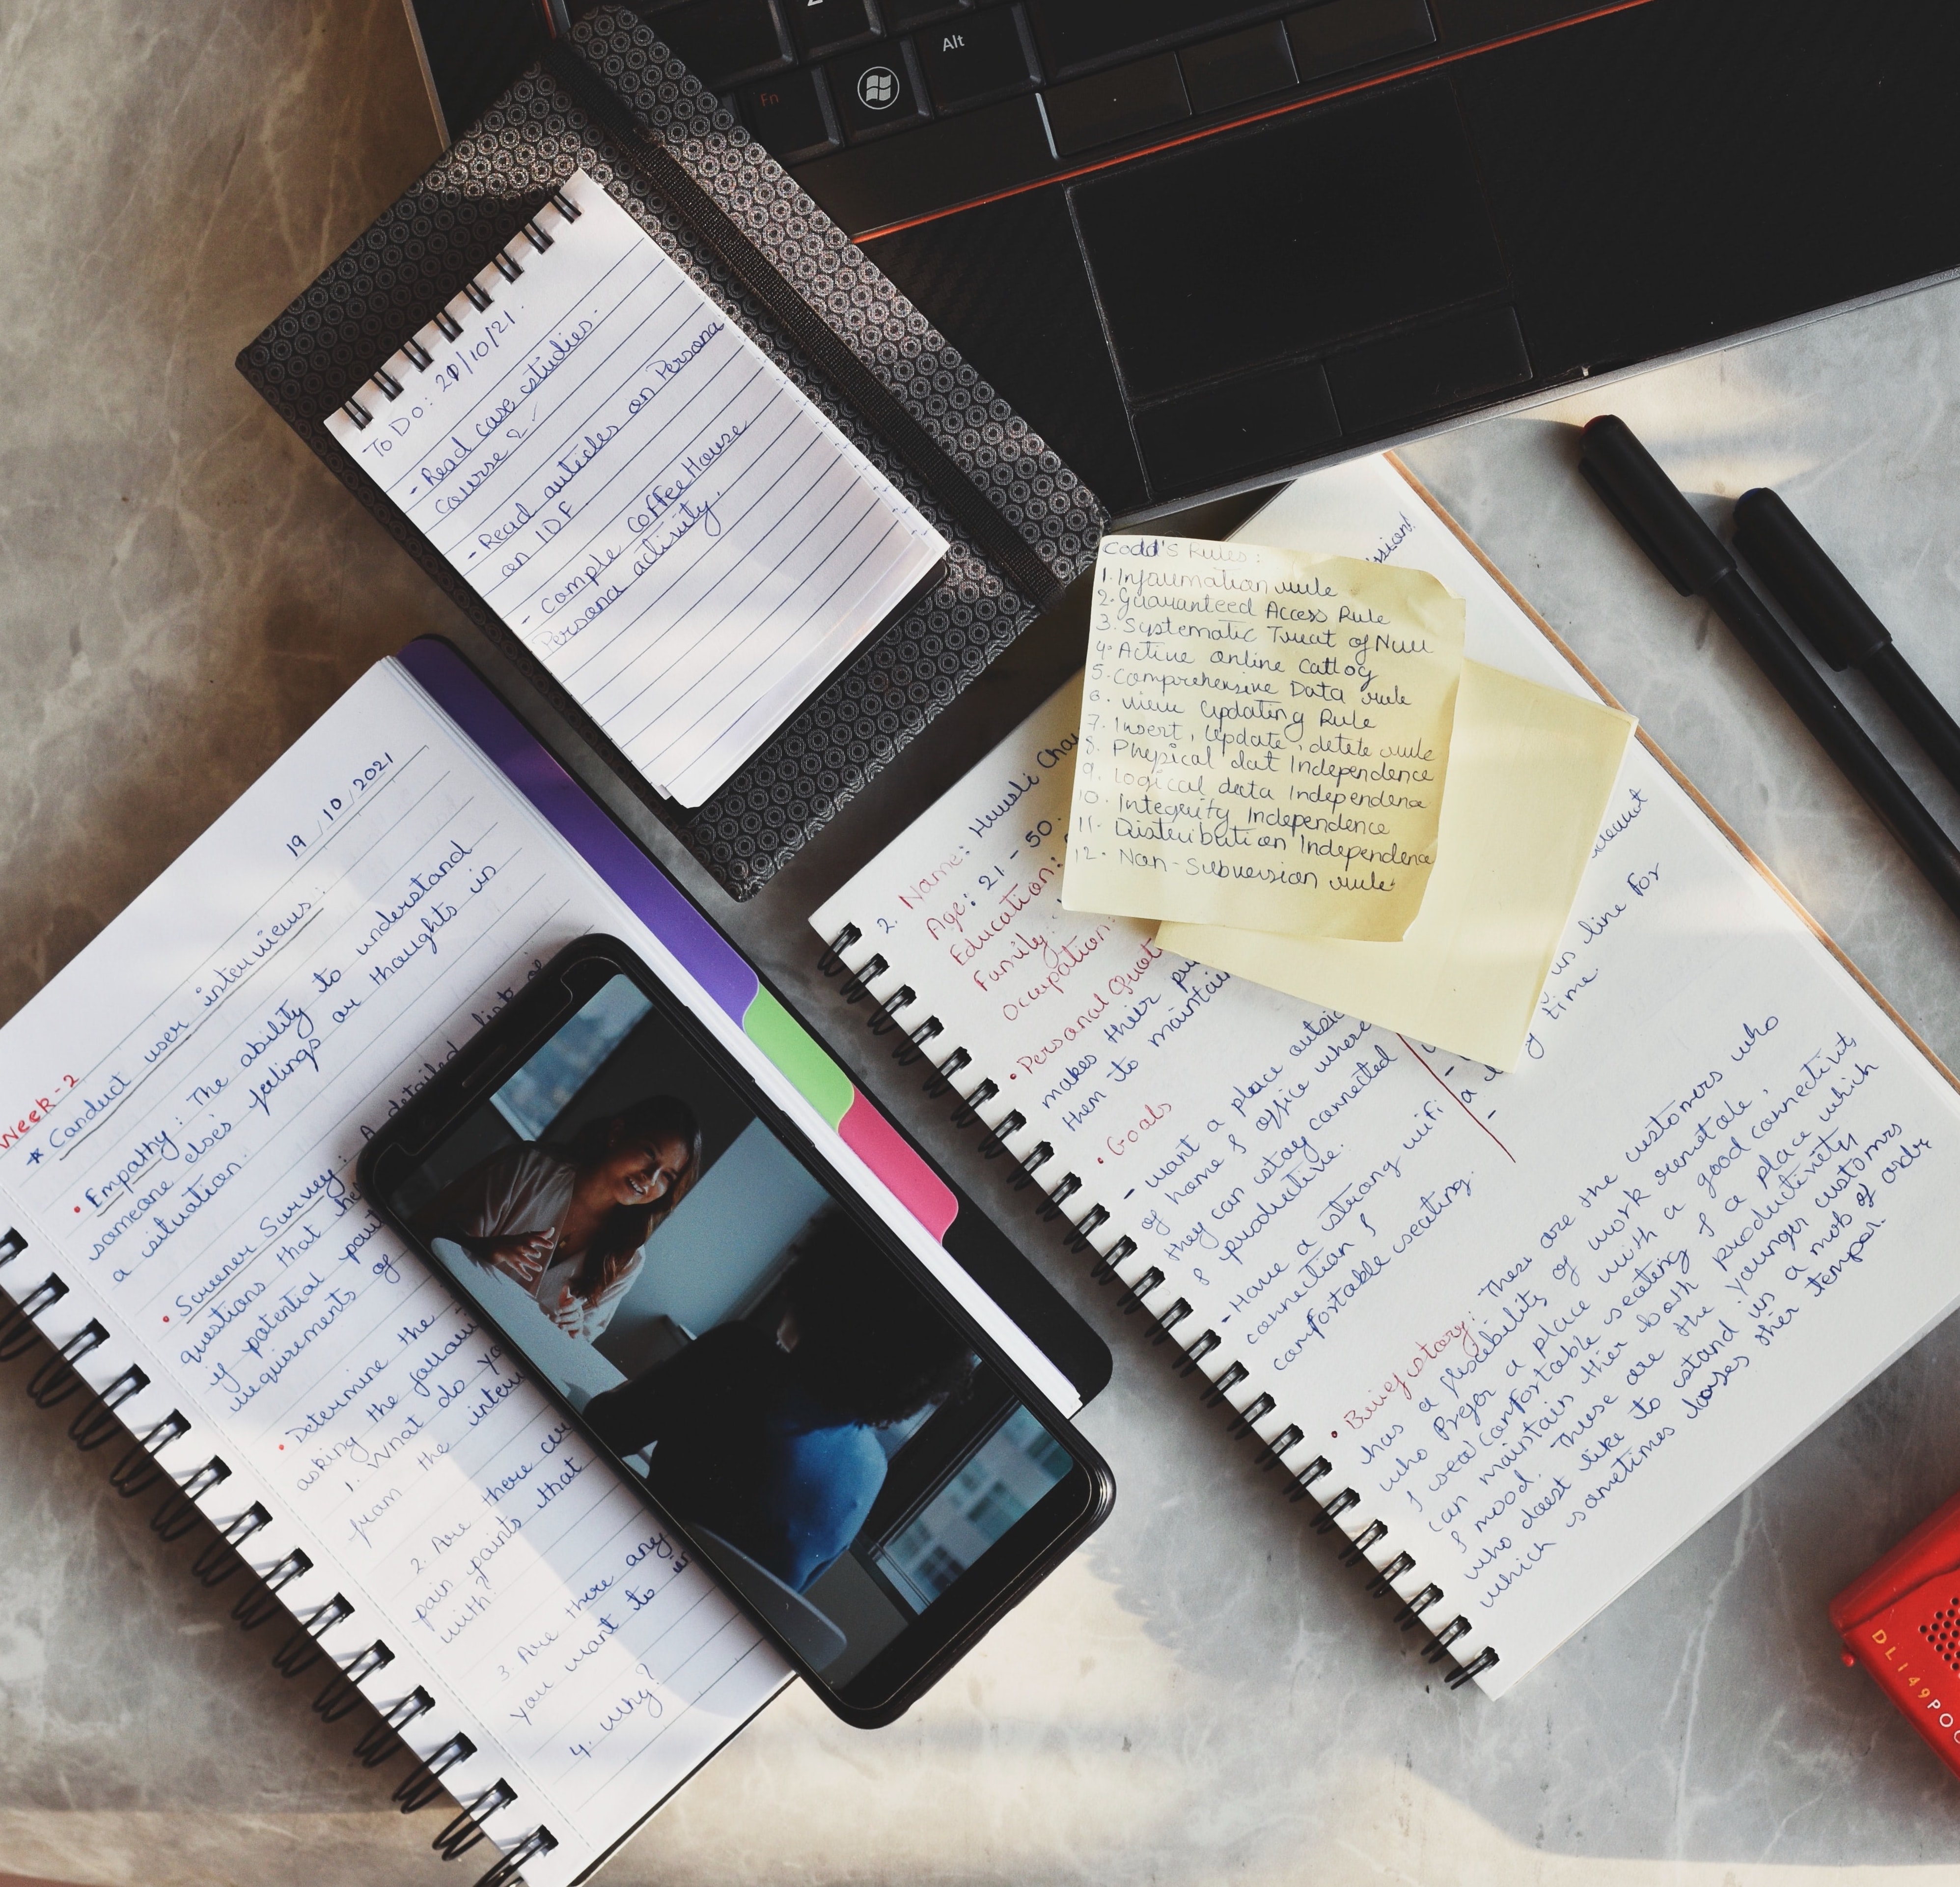 Fn
Alt
To Do: 20/10/21.
- Read case studies-
course 2.
- Read articles on Persona
on IDF
- Comple Coffee House
Persona activity.
Codd's Rules:
1. Information rule
2. Guaranteed Access Rule
3. Systematic Treat of Null
4. Active online Catlog
5. Comprehensive Data rule
6. view Updating Rule
7. Insert, Update, detele rule
8. Physical dat Independence
9. Logical data Independence
10. Integrity Independence
11. Distribution Independence
12. Non-Subversion rule
19/10/2021
Week-2
* Conduct user interviews:
• Empathy: The ability to understand
someone else's feelings or thoughts in
a situation.
• Screener Survey: A detailed list of
questions that he
if potential part
requirements of
• Determine the
asking the follow
1. What do yo
from the inter
2. Are there cu
pain points that
with?
3. Are there any
you want to in
4. Why?
2. Name:
Age: 21 - 50.
Education:
Family:
Occupation:
• Personal Quot
makes their
them to maintain
• Goals
- want a place outsi
of home & office where
they can stay connected
& productive.
- Have a strong wifi
connection &
comfortable seating.
in line for
time
• Brief story: These are the customers who
has a flexibility of work remotale,
who Prefer a place with a good connectivit
& seat comfortable seating & a place which
can maintain thier both productivity
& mood. These are the younger customrs
who doest like to stand in a mob of ordr
which sometimes loses ther tempar.
DL149POC